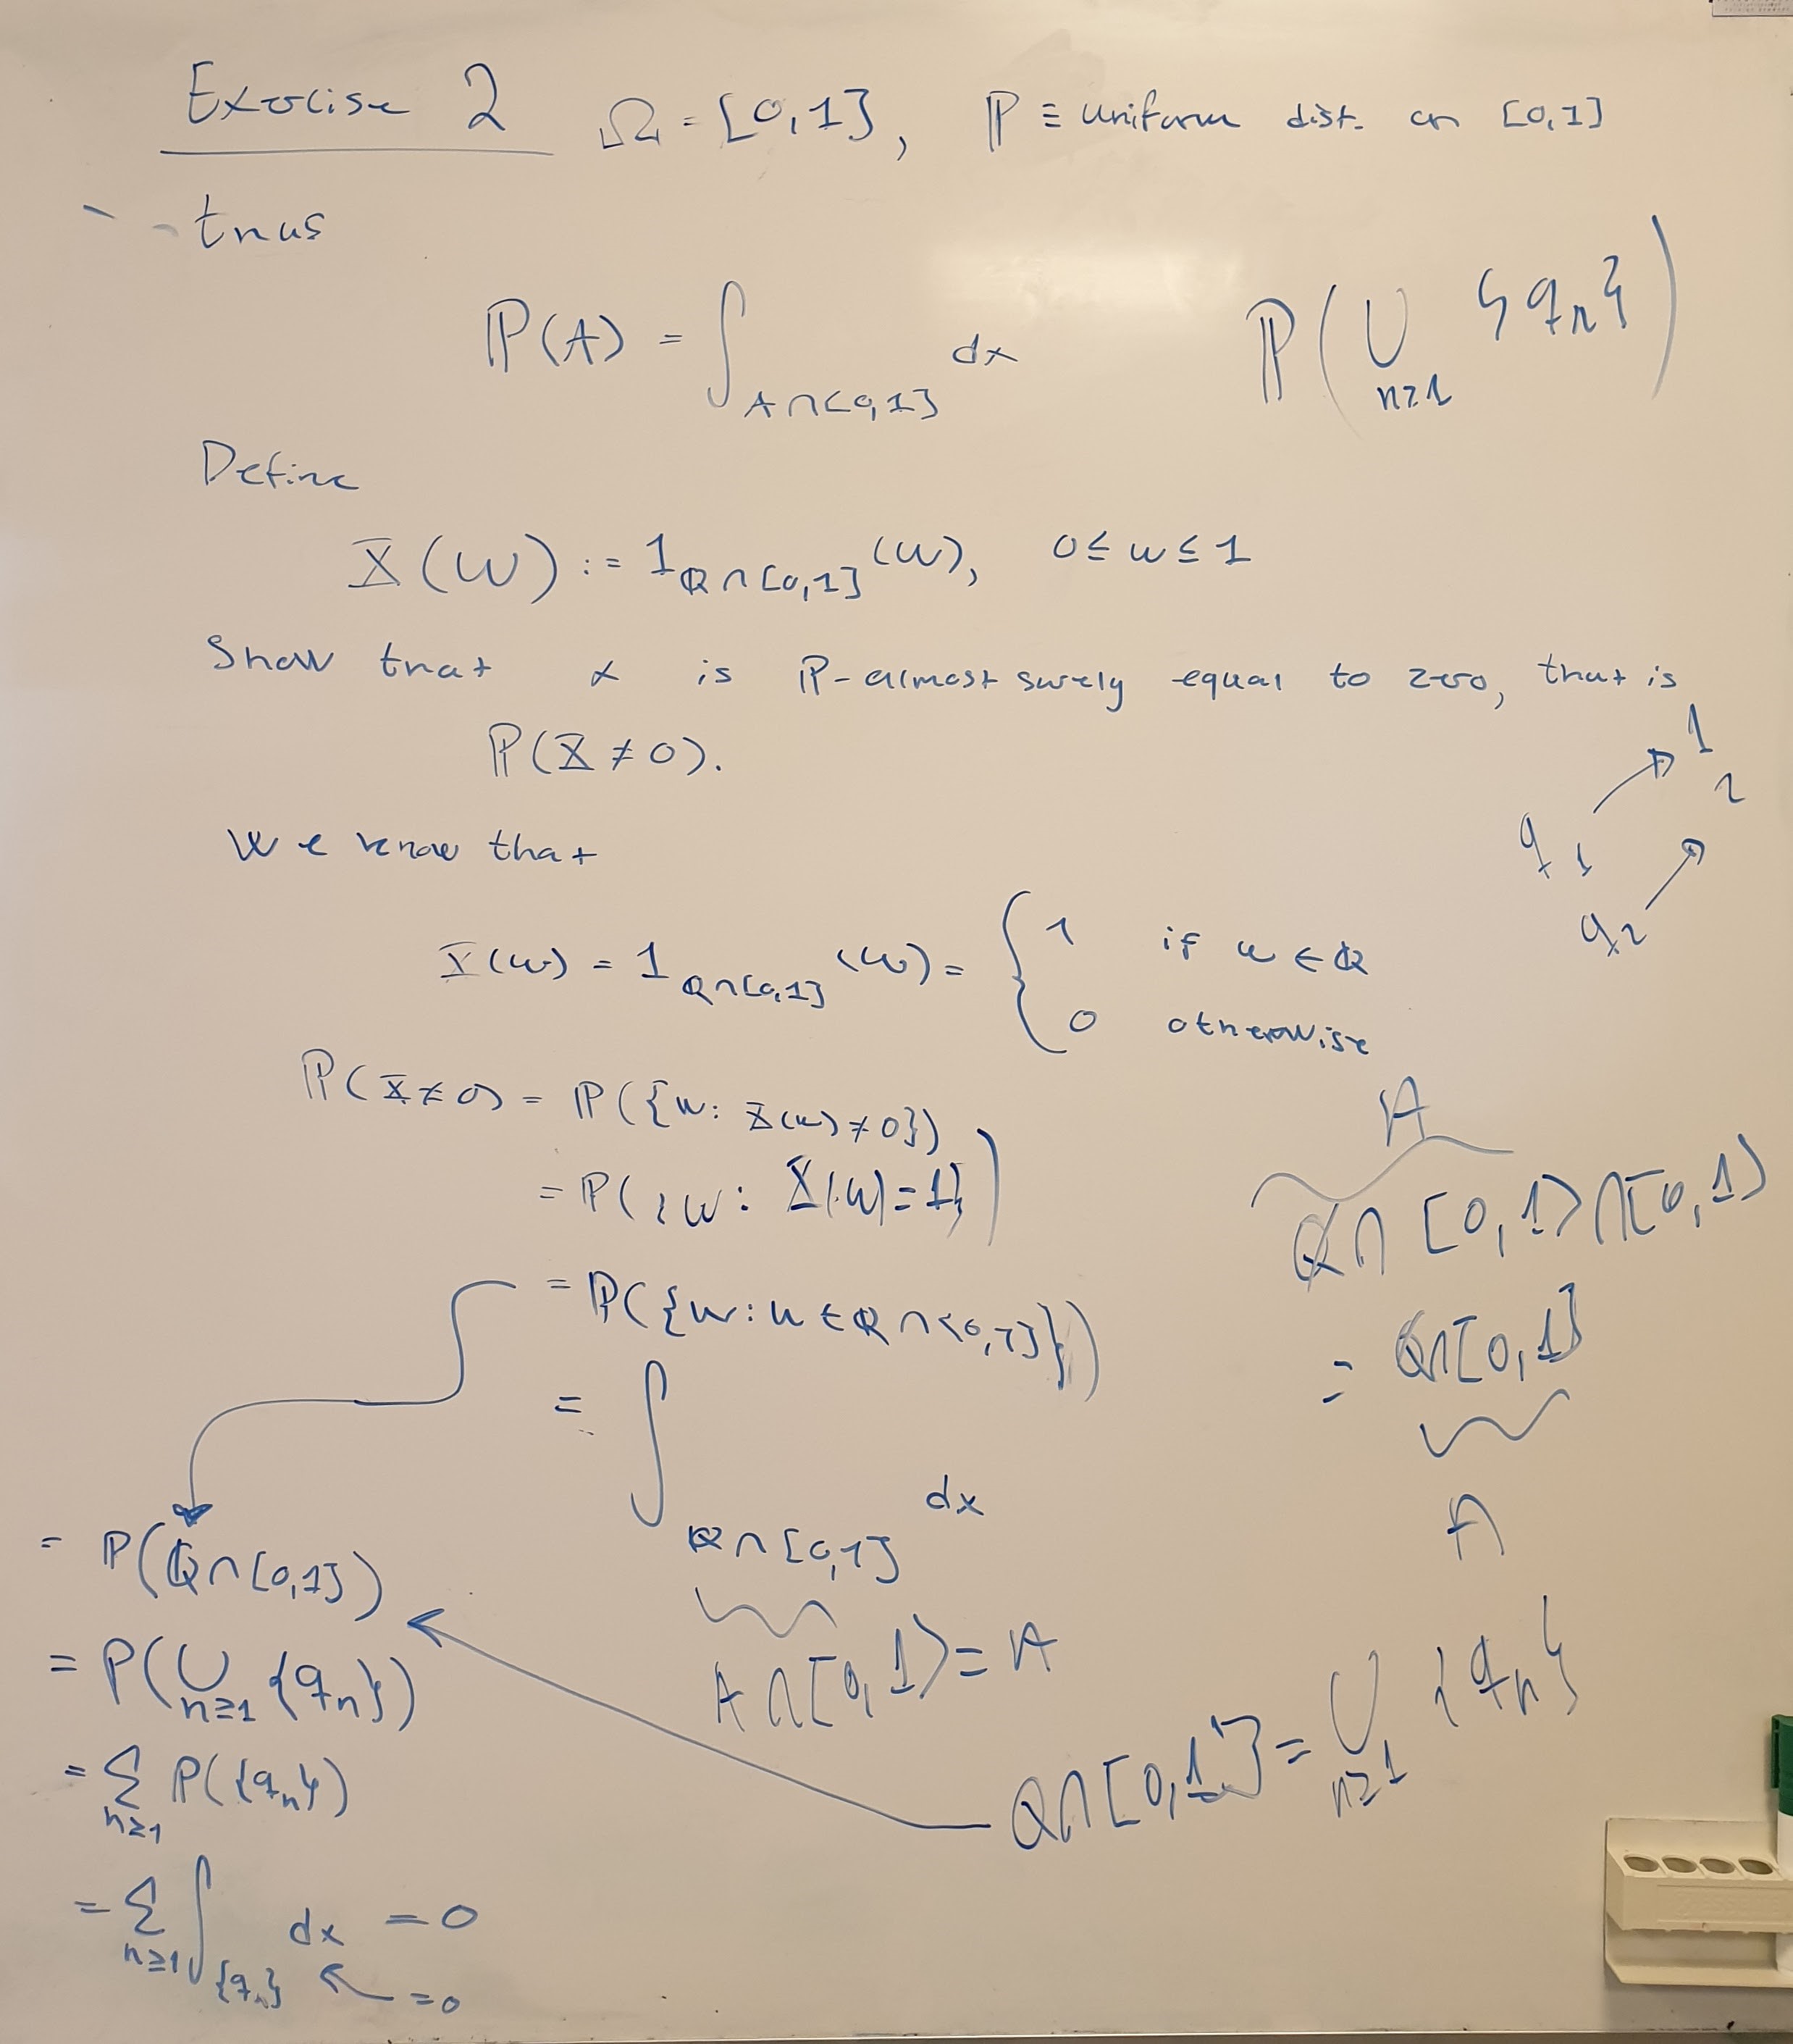 Exercise 2 Ω = [0,1], ℙ ≡ uniform dist. on [0,1]
thus
ℙ(A) = ∫_{A∩[0,1]} dx
ℙ(∪_{n≥1} {q_n})
Define
X(ω) := 1_{ℚ∩[0,1]}(ω), 0 ≤ ω ≤ 1
Show that X is ℙ-almost surely equal to zero, that is
ℙ(X ≠ 0).
We know that
q_1 → 1
q_2 → 2
X(ω) = 1_{ℚ∩[0,1]}(ω) = { 1 if ω ∈ ℚ
0 otherwise
ℙ(X ≠ 0) = ℙ({ω: X(ω) ≠ 0})
= ℙ({ω: X(ω) = 1})
= ℙ({ω: ω ∈ ℚ ∩ [0,1]})
= ∫_{ℚ∩[0,1]} dx
A ∩ [0,1] = A
A
ℚ ∩ [0,1] ∩ [0,1]
= ℚ∩[0,1]
A
= ℙ(ℚ∩[0,1])
= P(∪_{n≥1} {q_n})
= Σ_{n≥1} P({q_n})
= Σ_{n≥1} ∫_{{q_n}} dx = 0
= 0
ℚ∩[0,1] = ∪_{n≥1} {q_n}